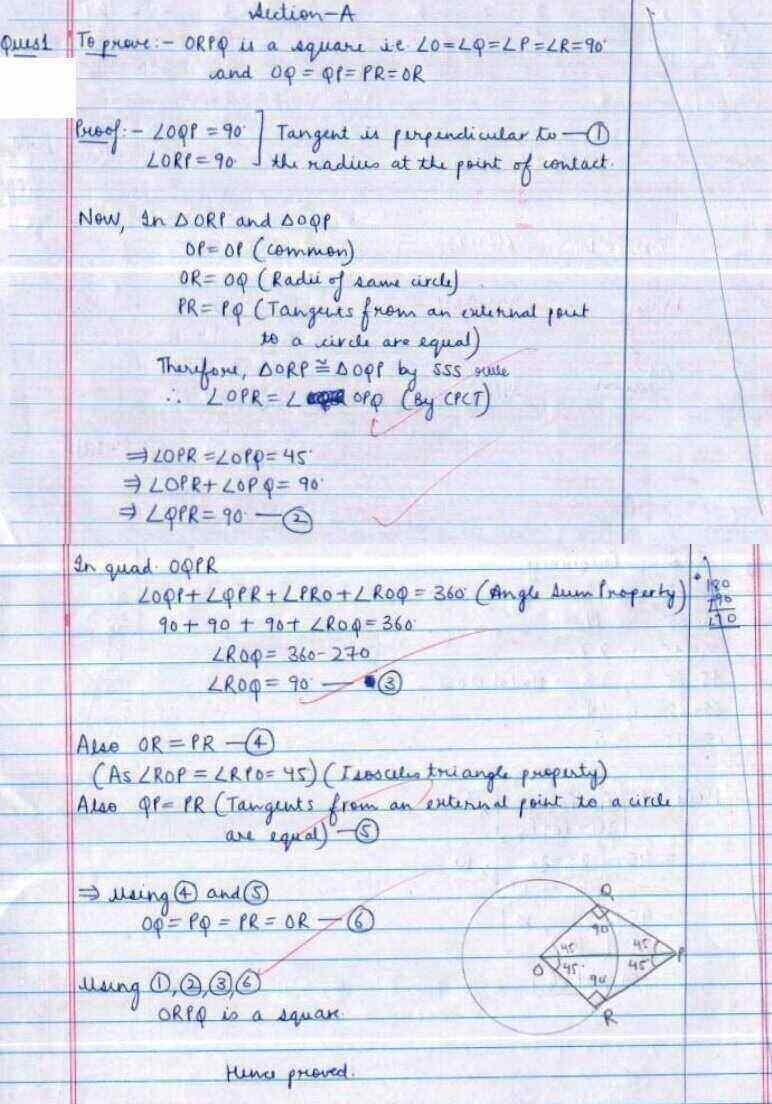 Section-A
Ques1 To prove:- ORPQ is a square i.e. ∠O=∠Q=∠P=∠R=90°
and OQ = QP = PR = OR
Proof:- ∠OQP = 90° ] Tangent is perpendicular to —①
∠ORP = 90° the radius at the point of contact.
Now, In △ORP and △OQP
OP = OP (common)
OR = OQ (Radii of same circle)
PR = PQ (Tangents from an external point
to a circle are equal)
Therefore, △ORP ≅ △OQP by SSS rule
∴ ∠OPR = ∠OPQ (By CPCT)
⇒ ∠OPR = ∠OPQ = 45°
⇒ ∠OPR + ∠OPQ = 90°
⇒ ∠QPR = 90° —②
In quad. OQPR
∠OQP + ∠QPR + ∠PRO + ∠ROQ = 360° (Angle Sum Property)
90 + 90 + 90 + ∠ROQ = 360°
∠ROQ = 360 - 270
∠ROQ = 90° —③
180
90
Also OR = PR —④
(As ∠ROP = ∠RPO = 45) (Isosceles triangle property)
Also QP = PR (Tangents from an external point to a circle
are equal) —⑤
⇒ Using ④ and ⑤
OQ = PQ = PR = OR —⑥
Using ①, ②, ③, ⑥
ORPQ is a square.
Hence proved.
Q
90
45° 45
O P
45° 45
90
R